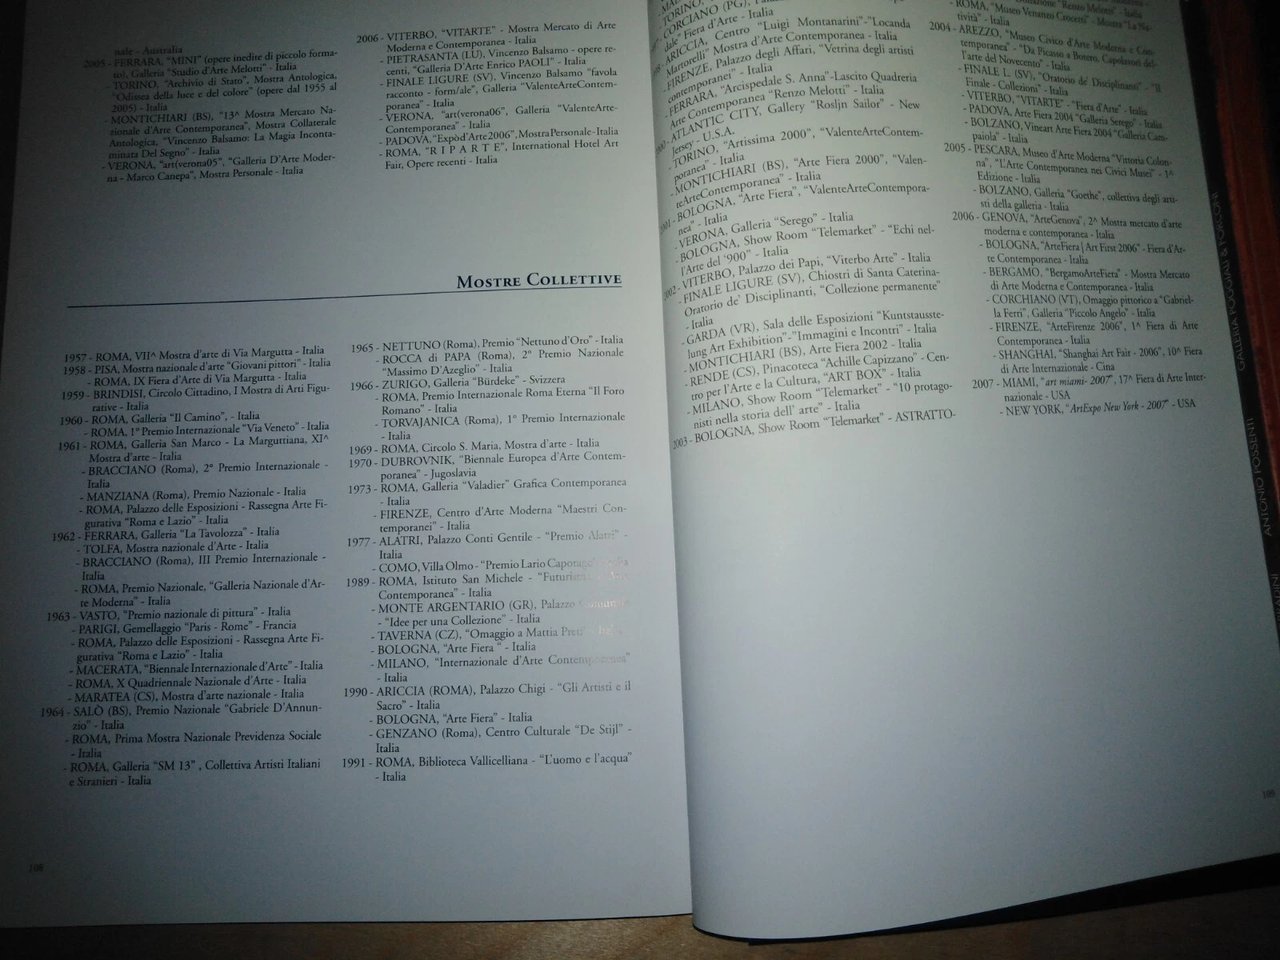 nale - Australia
2005 - FERRARA, "MINI" (opere inedite di piccolo forma-
to), Galleria "Studio d'Arte Melotti" - Italia
- TORINO, "Archivio di Stato", Mostra Antologica,
"Odissea della luce e del colore" (opere dal 1955 al
2005) - Italia
- MONTICHIARI (BS), "13^ Mostra Mercato Na-
zionale d'Arte Contemporanea", Mostra Collaterale
Antologica, "Vincenzo Balsamo: La Magia Inconta-
minata Del Segno" - Italia
- VERONA, "art(verona05", "Galleria D'Arte Moder-
na - Marco Canepa", Mostra Personale - Italia
2006 - VITERBO, "VITARTE" - Mostra Mercato di Arte
Moderna e Contemporanea - Italia
- PIETRASANTA (LU), Vincenzo Balsamo - opere re-
centi, "Galleria D'Arte Enrico PAOLI" - Italia
- FINALE LIGURE (SV), Vincenzo Balsamo "favola
racconto - form/ale", Galleria "ValenteArteContem-
poranea" - Italia
- VERONA, "art(verona06", Galleria "ValenteArte-
Contemporanea" - Italia
- PADOVA, "Expòd'Arte2006", MostraPersonale-Italia
- ROMA, "R I P A R T E", International Hotel Art
Fair, Opere recenti - Italia
MOSTRE COLLETTIVE
1957 - ROMA, VII^ Mostra d'arte di Via Margutta - Italia
1958 - PISA, Mostra nazionale d'arte "Giovani pittori" - Italia
- ROMA, IX Fiera d'Arte di Via Margutta - Italia
1959 - BRINDISI, Circolo Cittadino, I Mostra di Arti Figu-
rative - Italia
1960 - ROMA, Galleria "Il Camino", - Italia
- ROMA, 1° Premio Internazionale "Via Veneto" - Italia
1961 - ROMA, Galleria San Marco - La Marguttiana, XI^
Mostra d'arte - Italia
- BRACCIANO (Roma), 2° Premio Internazionale -
Italia
- MANZIANA (Roma), Premio Nazionale - Italia
- ROMA, Palazzo delle Esposizioni - Rassegna Arte Fi-
gurativa "Roma e Lazio" - Italia
1962 - FERRARA, Galleria "La Tavolozza" - Italia
- TOLFA, Mostra nazionale d'Arte - Italia
- BRACCIANO (Roma), III Premio Internazionale -
Italia
- ROMA, Premio Nazionale, "Galleria Nazionale d'Ar-
te Moderna" - Italia
1963 - VASTO, "Premio nazionale di pittura" - Italia
- PARIGI, Gemellaggio "Paris - Rome" - Francia
- ROMA, Palazzo delle Esposizioni - Rassegna Arte Fi-
gurativa "Roma e Lazio" - Italia
- MACERATA, "Biennale Internazionale d'Arte" - Italia
- ROMA, X Quadriennale Nazionale d'Arte - Italia
- MARATEA (CS), Mostra d'arte nazionale - Italia
1964 - SALÒ (BS), Premio Nazionale "Gabriele D'Annun-
zio" - Italia
- ROMA, Prima Mostra Nazionale Previdenza Sociale
- Italia
- ROMA, Galleria "SM 13" , Collettiva Artisti Italiani
e Stranieri - Italia
1965 - NETTUNO (Roma), Premio "Nettuno d'Oro" - Italia
- ROCCA di PAPA (Roma), 2° Premio Nazionale
"Massimo D'Azeglio" - Italia
1966 - ZURIGO, Galleria "Bürdeke" - Svizzera
- ROMA, Premio Internazionale Roma Eterna "Il Foro
Romano" - Italia
- TORVAJANICA (Roma), 1° Premio Internazionale
- Italia
1969 - ROMA, Circolo S. Maria, Mostra d'arte - Italia
1970 - DUBROVNIK, "Biennale Europea d'Arte Contem-
poranea" - Jugoslavia
1973 - ROMA, Galleria "Valadier" Grafica Contemporanea
- Italia
- FIRENZE, Centro d'Arte Moderna "Maestri Con-
temporanei" - Italia
1977 - ALATRI, Palazzo Conti Gentile - "Premio Alatri" -
Italia
- COMO, Villa Olmo - "Premio Lario
1989 - ROMA, Istituto San Michele -
Contemporanea" - Italia
- MONTE ARGENTARIO (GR), Palazzo
- "Idee per una Collezione" - Italia
- TAVERNA (CZ), "Omaggio a Mattia
- BOLOGNA, "Arte Fiera " - Italia
- MILANO, "Internazionale d'Arte Contemporanea"
- Italia
1990 - ARICCIA (ROMA), Palazzo Chigi - "Gli Artisti e il
Sacro" - Italia
- BOLOGNA, "Arte Fiera" - Italia
- GENZANO (Roma), Centro Culturale "De Stijl" -
Italia
1991 - ROMA, Biblioteca Vallicelliana - "L'uomo e l'acqua"
- Italia
108
TORINO,
- CORCIANO (PG),
dale" Fiera d'Arte - Italia
- ARICCIA, Centro "Luigi Montanarini"-"Locanda
Martorelli" Mostra d'Arte Contemporanea - Italia
- FIRENZE, Palazzo degli Affari, "Vetrina degli artisti
contemporanei" - Italia
- FERRARA, "Arcispedale S. Anna"-Lascito Quadreria
Arte Contemporanea "Renzo Melotti" - Italia
- ATLANTIC CITY, Gallery "Rosljn Sailor" - New
Jersey - U.S.A.
- TORINO, "Artissima 2000", "ValenteArteContem-
poranea" - Italia
- MONTICHIARI (BS), "Arte Fiera 2000", "Valen-
teArteContemporanea" - Italia
2001 - BOLOGNA, "Arte Fiera", "ValenteArteContempora-
nea" - Italia
- VERONA, Galleria "Serego" - Italia
- BOLOGNA, Show Room "Telemarket" - "Echi nel-
l'Arte del '900" - Italia
2002 - VITERBO, Palazzo dei Papi, "Viterbo Arte" - Italia
- FINALE LIGURE (SV), Chiostri di Santa Caterina-
Oratorio de' Disciplinanti, "Collezione permanente"
- Italia
- GARDA (VR), Sala delle Esposizioni "Kuntstausste-
lung Art Exhibition"-"Immagini e Incontri" - Italia
- MONTICHIARI (BS), Arte Fiera 2002 - Italia
- RENDE (CS), Pinacoteca "Achille Capizzano" - Cen-
tro per l'Arte e la Cultura, "ART BOX" - Italia
- MILANO, Show Room "Telemarket" - "10 protago-
nisti nella storia dell' arte" - Italia
2003 - BOLOGNA, Show Room "Telemarket" - ASTRATTO-
"Renzo Melotti" - Italia
- ROMA, "Museo Venanzo Crocetti" - Mostra "La
tività" - Italia
2004 - AREZZO, "Museo Civico d'Arte Moderna e Con-
temporanea" - "Da Picasso a Botero, Capolavori del-
l'arte del Novecento" - Italia
- FINALE L. (SV), "Oratorio de' Disciplinanti" - "Il
Finale - Collezioni" - Italia
- VITERBO, "VITARTE" - "Fiera d'Arte" - Italia
- PADOVA, Arte Fiera 2004 "Galleria Serego" - Italia
- BOLZANO, Vineart Arte Fiera 2004 "Galleria Cam-
paiola" - Italia
2005 - PESCARA, Museo d'Arte Moderna "Vittoria Colon-
na", "L'Arte Contemporanea nei Civici Musei" - 1^
Edizione - Italia
- BOLZANO, Galleria "Goethe", collettiva degli arti-
sti della galleria - Italia
2006 - GENOVA, "ArteGenova", 2^ Mostra mercato d'arte
moderna e contemporanea - Italia
- BOLOGNA, "ArteFiera|Art First 2006" - Fiera d'Ar-
te Contemporanea - Italia
- BERGAMO, "BergamoArteFiera" - Mostra Mercato
di Arte Moderna e Contemporanea - Italia
- CORCHIANO (VT), Omaggio pittorico a "Gabriel-
la Ferri", Galleria "Piccolo Angelo" - Italia
- FIRENZE, "ArteFirenze 2006", 1^ Fiera di Arte
Contemporanea - Italia
- SHANGHAI, "Shanghai Art Fair - 2006", 10^ Fiera
di Arte Internazionale - Cina
2007 - MIAMI, "art miami- 2007", 17^ Fiera di Arte Inter-
nazionale - USA
- NEW YORK, "ArtExpo New York - 2007" - USA
109
ANTONIO POSSENTI
GALLERIA POGGIALI & FORCONI